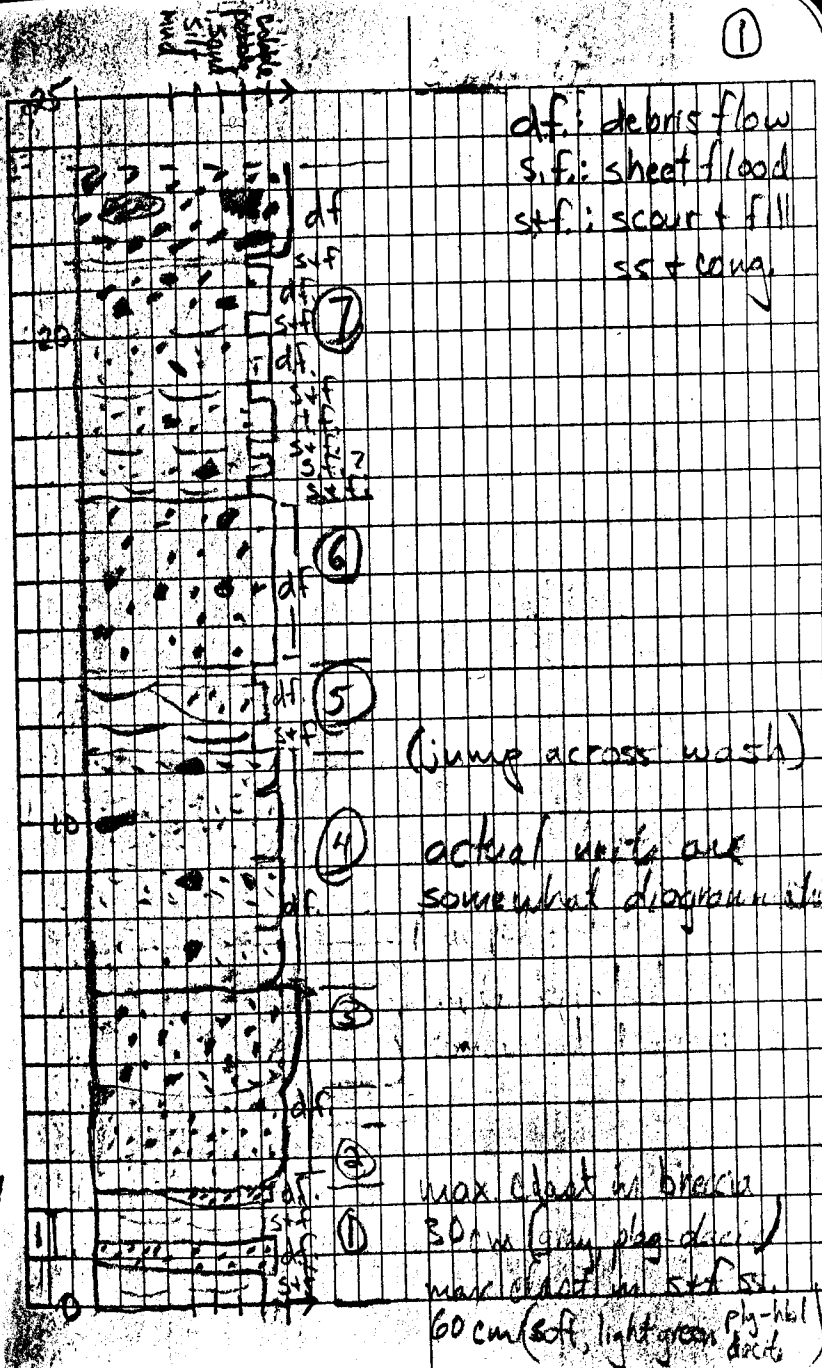 ①
mud
silt
sand
pebble
cobble
25
df.: debris flow
s.f.: sheet flood
s+f.: scour + fill
ss + cong.
df
s+f
df
⑦
s+f
20
df.
s+f
s+f
?
s+f.
⑥
df
df.
⑤
s+f
(jump across wash)
10
④
actual units are
somewhat
df.
③
df
②
df.
max clast in breccia
s+f
①
30 cm (gray plag-dacite)
df
max clast in s+f ss.
s+f
0
60 cm (soft, light green plg-hbl
dacite